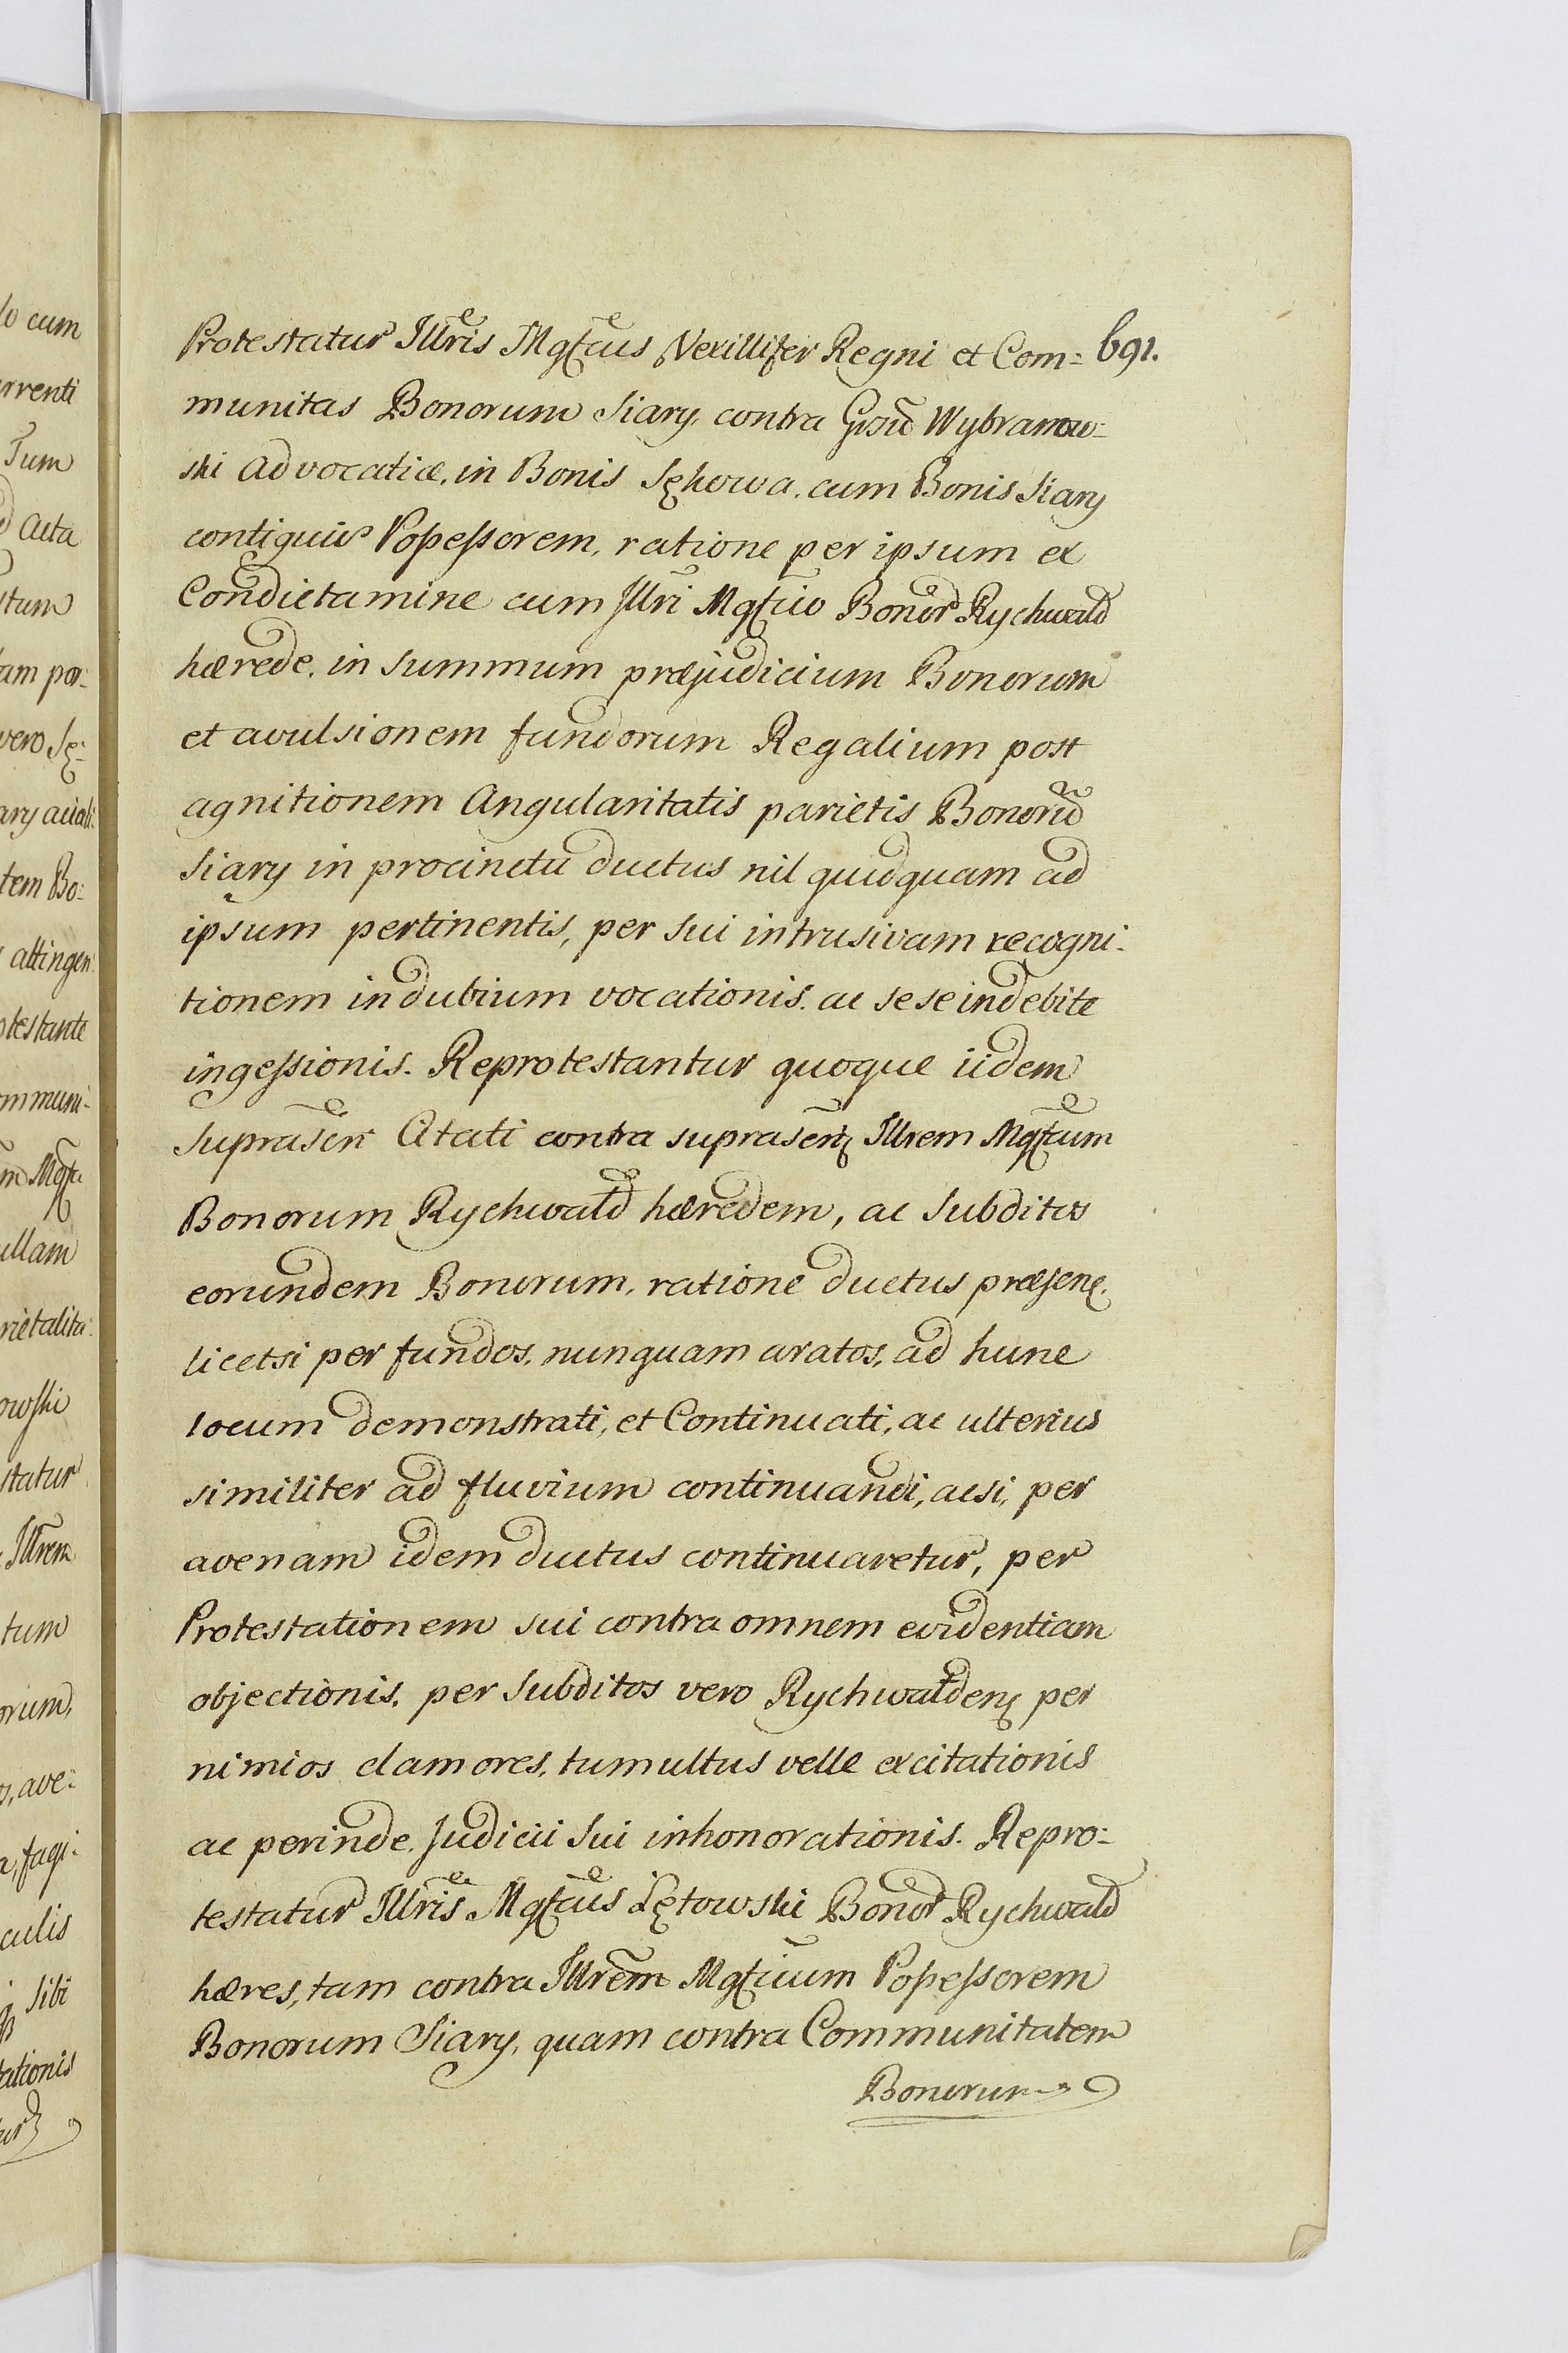 Protestatur Illris Mgfcus Vexillifer Regni et Com= 691.
munitas Bonorum Siary, contra Gsū Wybranow=
ski Advocatiæ, in Bonis Sękowa, cum Bonis Siary
contiguis Possessorem, ratione per ipsum ex
Condictamine cum Illri Mgfico Bonor Rychwald
hærede, in summum præjudicium Bonorum
et avulsionem fundorum Regalium post
agnitionem Angularitatis parietis Bonorū
Siary in procinctu ductus nil quidquam ad
ipsum pertinentis, per sui intrusivam recogni-
tionem in dubium vocationis, ac sese indebite
ingessionis. Reprotestantur quoque iidem
suprascri Citati contra suprascrip Illrem Mgfcum
Bonorum Rychwałd hæredem, ac Subditos
eorundem Bonorum, ratione ductus præsenę.
licetsi per fundos, nunquam aratos, ad hunc
locum demonstrati, et Continuati, ac ulterius
similiter ad fluvium continuandi, acsi, per
avenam idem ductus continuaretur, per
Protestationem sui contra omnem evidentiam
objectionis, per Subditos vero Rychwałdenę per
nimios clamores, tumultus velle excitationis
ac perinde, Judicii Sui inhonorationis. Repro=
testatur Illris Mgfcus Łętowski Bonor Rychwald
hæres, tam contra Illrem Mgficum Possessorem
Bonorum Siary, quam contra Communitatem
Bonorum
lo cum
urrenti
Tum
Acta
tum
am por=
vero Sę=
tem Bo=
attingen
otestante
ommuni-
m Mgfcu
ullam
rietalita=
owski
statur
Illrem
tum
orum,
s, ave=
culis
sibi
tationis